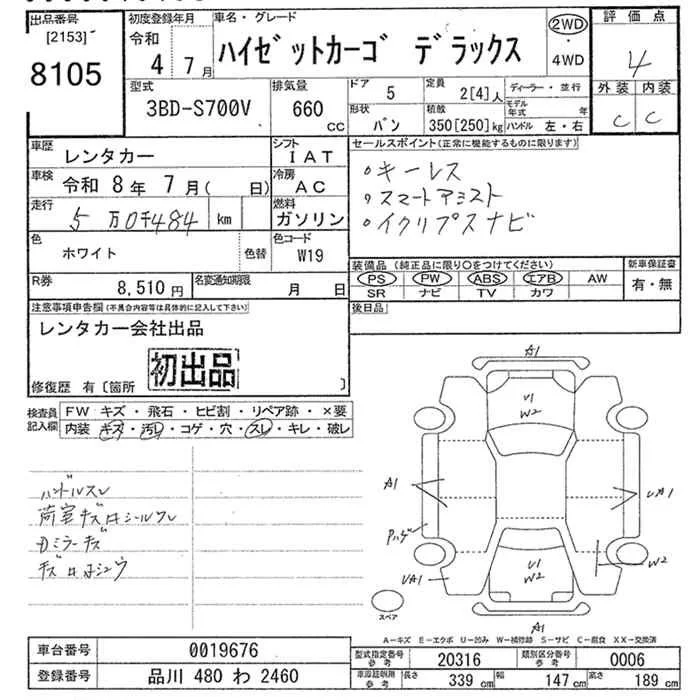 出品番号 初度登録年月 車名・グレード 評価点
[2153] 令和 2WD
8105 4年 7月 ハイゼットカーゴ デラックス ・ 4
4WD
型式 排気量 ドア 5 定員 2[4]人 ディーラー・並行 外装 内装
3BD-S700V 660 CC 形状 バン 積載 350[250]kg モデル年式 年 C C
ハンドル 左・右
車歴 レンタカー シフト IAT セールスポイント(正常に機能するものに限ります)
車検 令和 8年 7月( 日) 冷房 AC ・キーレス
・スマートアシスト
走行 5万0千484 km 燃料 ガソリン ・イクリプスナビ
色 ホワイト 色替 色コード W19
装備品(純正品に限り○をつけてください) 新車保証書
R券 8,510円 名変通知期限 月 日 PS PW ABS エアB AW 有・無
SR ナビ TV カワ
注意事項申告欄(不具合内容等は具体的に記入して下さい) 後日品
レンタカー会社出品
初出品
修復歴 有〔箇所 〕
検査員記入欄 FW キズ・飛石・ヒビ割・リペア跡・×要
内装 キズ・汚レ・コゲ・穴・スレ・キレ・破レ
ハンドルスレ
荷室キズ サシールワレ
Dミラーキズ
A1
U1
W2
A1
UA1
Pハゲ
U1
W2
W2
UA1
スペア
A1
A-キズ E-エクボ U-凹み W-補修跡 S-サビ C-腐食 XX-交換済
車台番号 0019676 型式指定番号 参考 20316 類別区分番号 参考 0006
登録番号 品川 480 わ 2460 車庫証明用 参考 長さ 339cm 幅 147cm 高さ 189cm